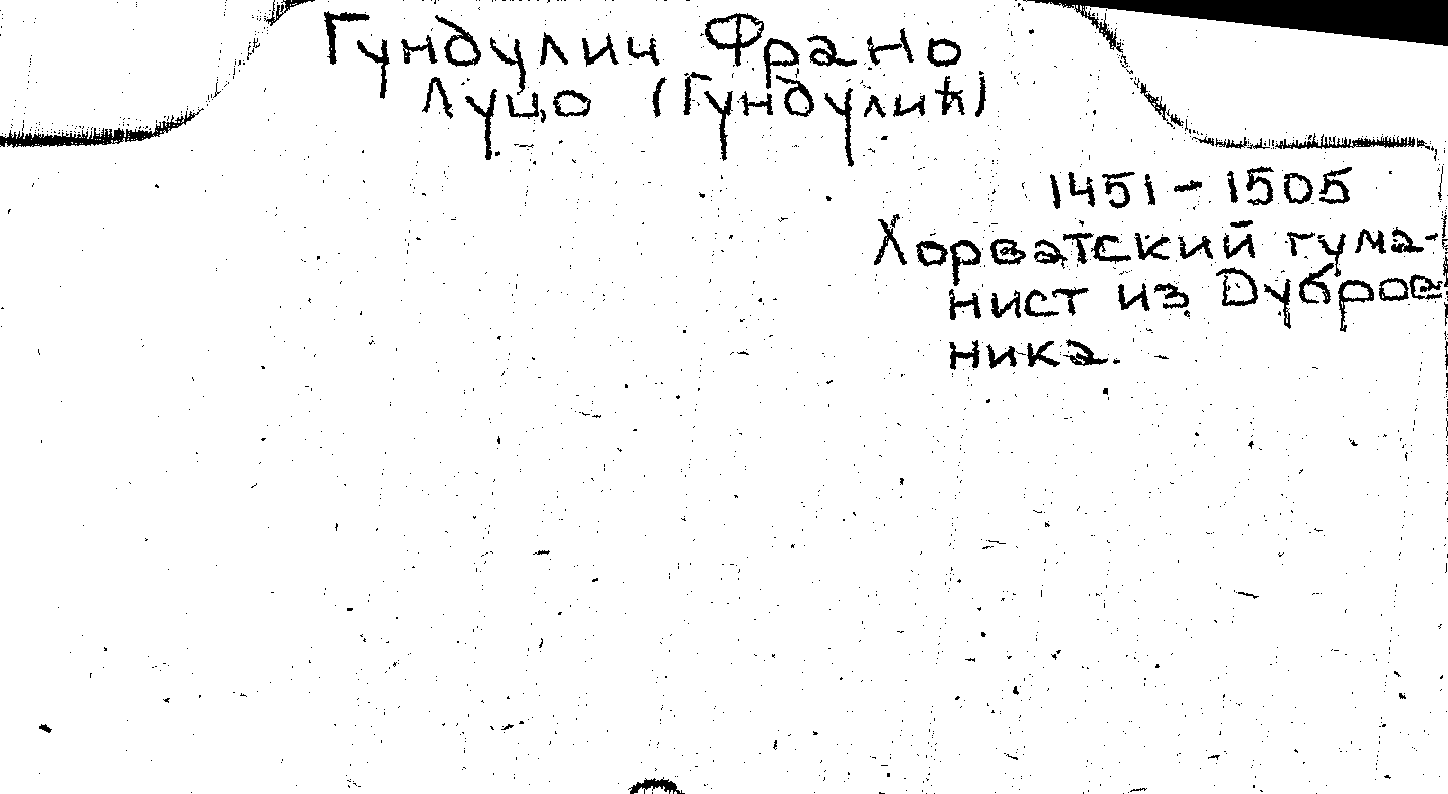 Гундулич Франо
Луцо (Гундулић)
1451 - 1505
Хорватский гума-
нист из Дубров-
ника.